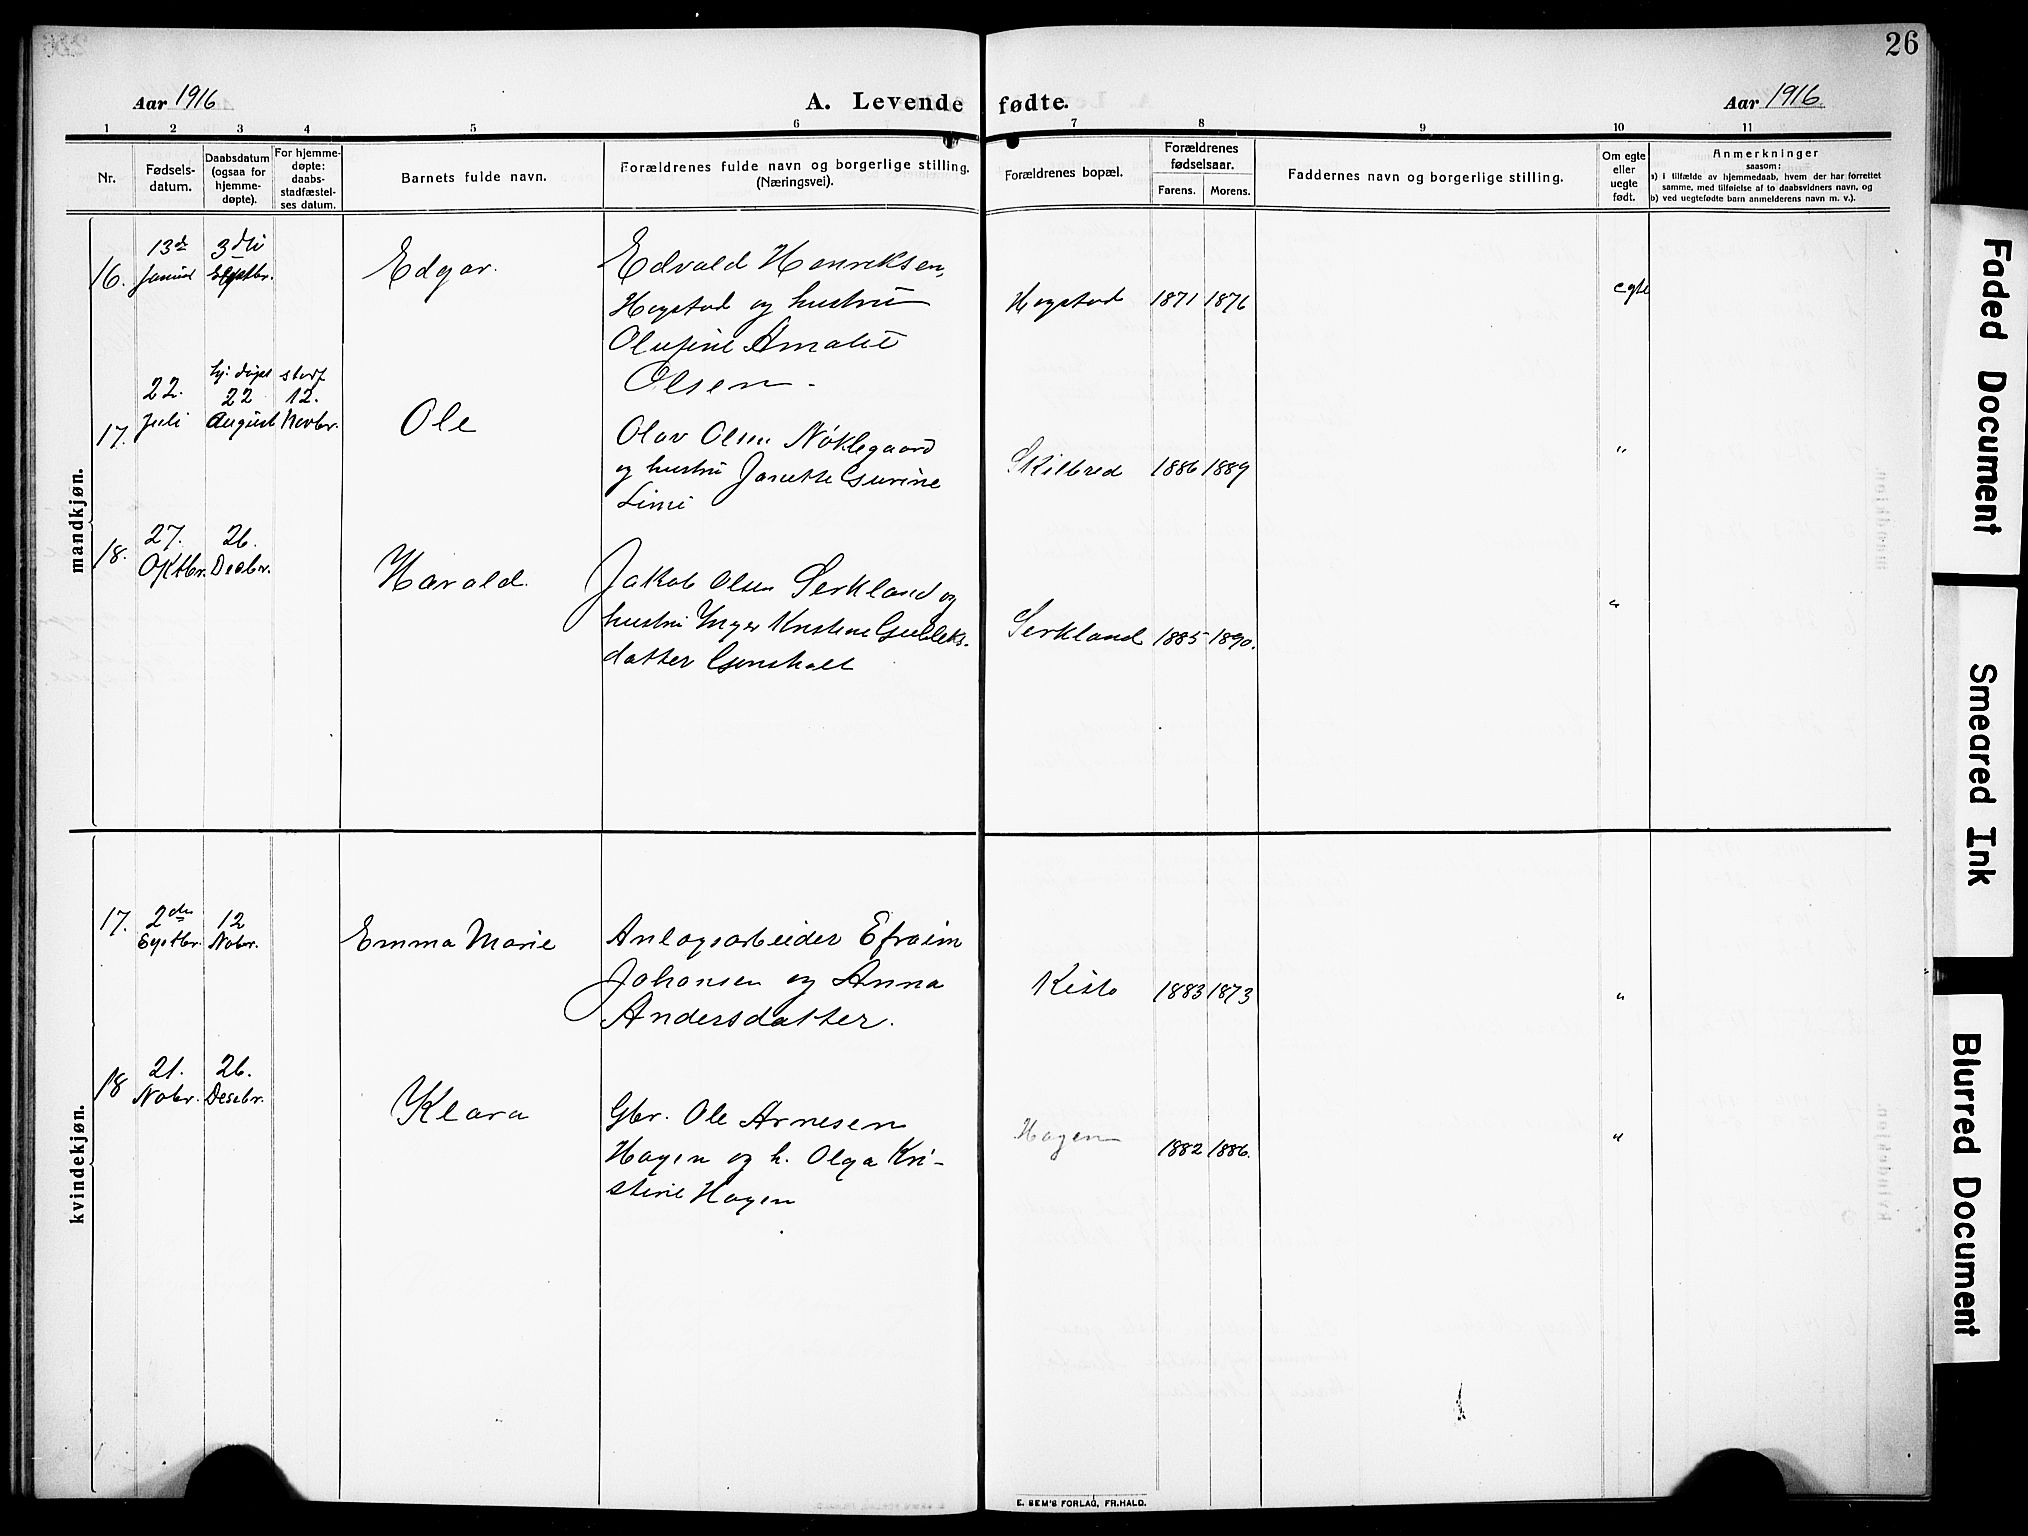 26
Aar 1916
A. Levende fødte.
Aar 1916.
1 2 3 4 5 6 7 8 9 10 11
Nr.
Fødsels-
datum.
Daabsdatum
(ogsaa for
hjemme-
døpte).
For hjemme-
døpte:
daabs-
stadfæstel-
ses datum.
Barnets fulde navn.
Forældrenes fulde navn og borgerlige stilling.
(Næringsvei).
Forældrenes bopæl.
Forældrenes
fødselsaar.
Farens. Morens.
Faddernes navn og borgerlige stilling.
Om egte
eller
uegte
født.
Anmerkninger
saasom:
a) i tilfælde av hjemmedaab, hvem der har forrettet
samme, med tilføielse af to daabsvidners navn, og
b) ved uegtefødte barn anmelderens navn m. v.).
mandkjøn.
16.
13de
Junii
3die
Edgar.
Edvald Henriksen,
Hegstad og hustru
Olufine Amalie
Olsen.
Hegstad 1871 1876
egte
17.
22.
juli
hj. døpt
22
August
12.
Novbr.
Ole
Olav Olsen Nøklegaard
og hustru Janette Gurine
Limi
Skilbred 1886 1889
"
18.
27.
Oktbr.
26.
Decbr.
Harald.
Jakob Olsen Serkland og
hustru Inger Kristine Gulleks-
datter Gunshalt
Serkland 1885 1890.
"
kvindekjøn.
17.
2den
Septbr.
12
Nobr.
Emma Marie
Anlægsarbeider Efraim
Johansen og Anna
Andersdatter.
Kisto 1883 1873
"
18
21.
Nobr.
26.
Desebr.
Klara
Gbr. Ole Arnesen
Hagen og h. Olga Kri-
stine Hagen
Hagen 1882 1886.
"
E. SEM'S FORLAG, FR.HALD.
Faded Document
Smeared Ink
Blurred Document